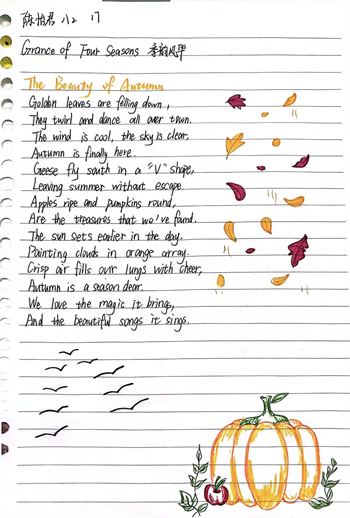 陈怡君 小2 17
Grance of Four Seasons 季韵风华
The Beauty of Autumn
Golden leaves are felling down,
They twirl and dance all over town.
The wind is cool, the sky is clear,
Autumn is finally here.
Geese fly south in a "V" shape,
Leaving summer without escape.
Apples ripe and pumpkins round,
Are the treasures that we've found.
The sun sets earlier in the day.
Painting clouds in orange array.
Crisp air fills our lungs with cheer,
Autumn is a season dear.
We love the magic it brings,
And the beautiful songs it sings.